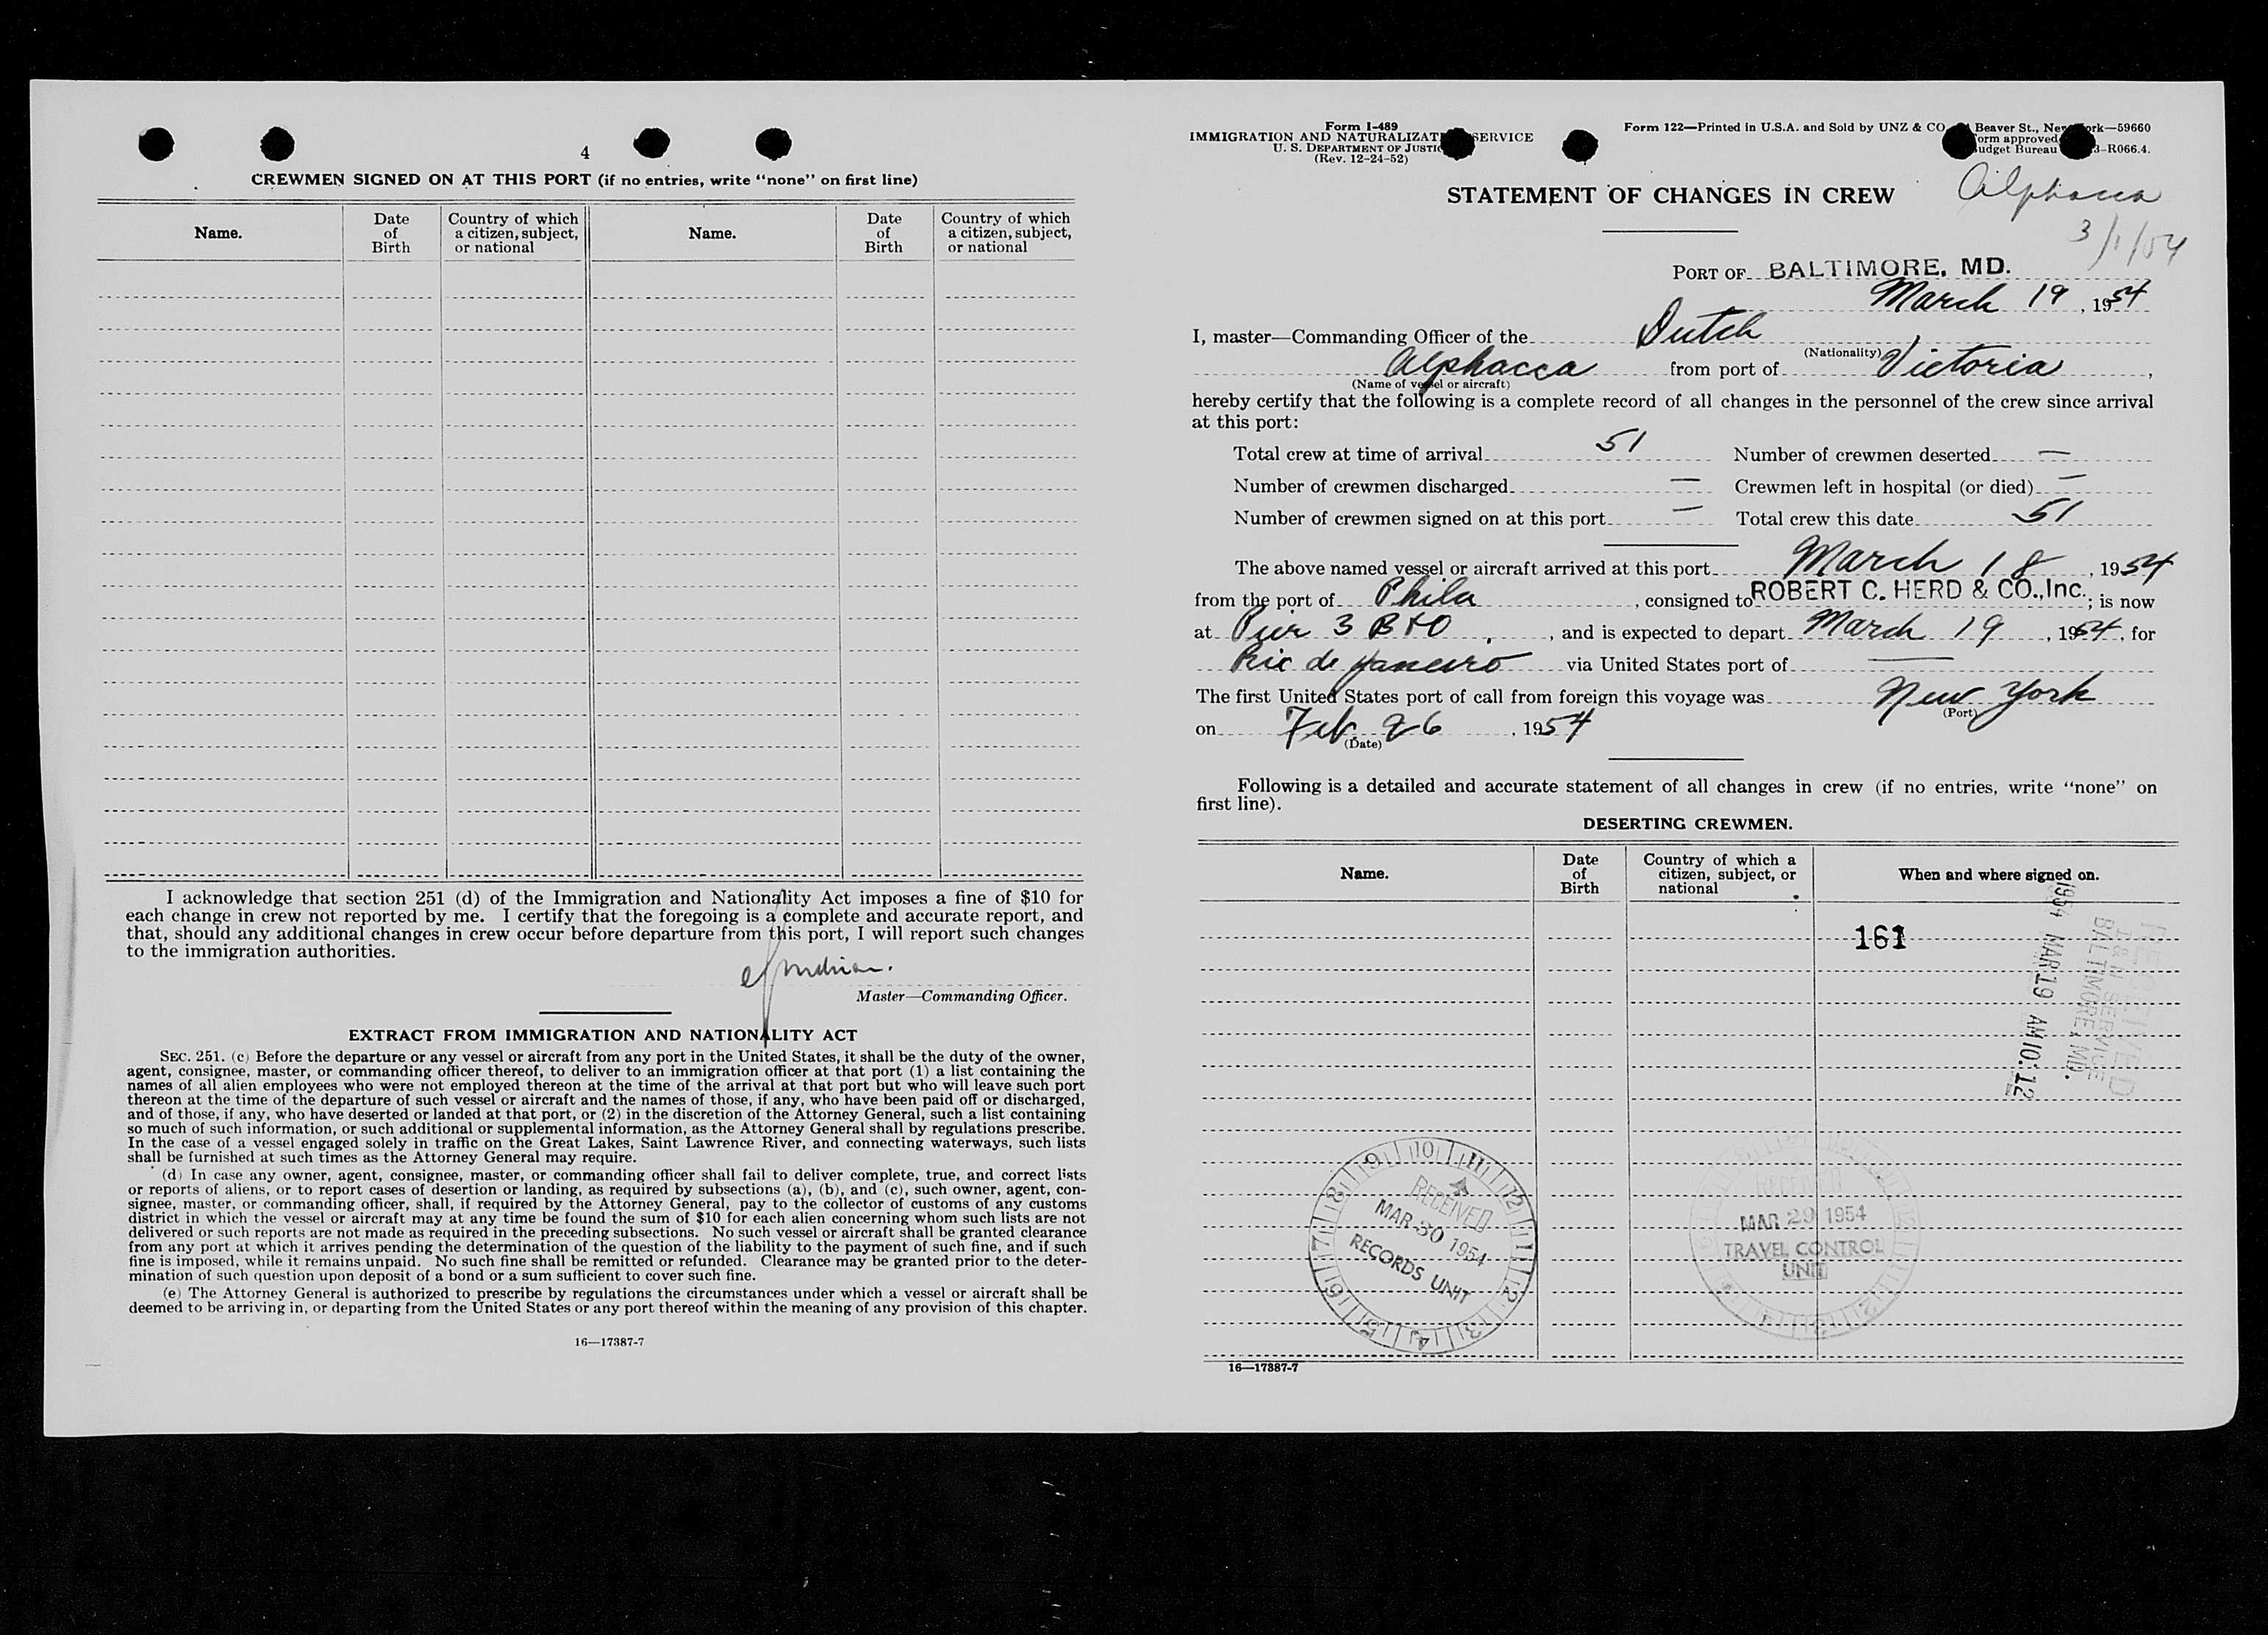 4
CREWMEN SIGNED ON AT THIS PORT (if no entries, write "none" on first line)
Name. Date of Birth Country of which a citizen, subject, or national Name. Date of Birth Country of which a citizen, subject, or national
I acknowledge that section 251 (d) of the Immigration and Nationality Act imposes a fine of $10 for
each change in crew not reported by me. I certify that the foregoing is a complete and accurate report, and
that, should any additional changes in crew occur before departure from this port, I will report such changes
to the immigration authorities.
Master—Commanding Officer.
EXTRACT FROM IMMIGRATION AND NATIONALITY ACT
SEC. 251. (c) Before the departure or any vessel or aircraft from any port in the United States, it shall be the duty of the owner,
agent, consignee, master, or commanding officer thereof, to deliver to an immigration officer at that port (1) a list containing the
names of all alien employees who were not employed thereon at the time of the arrival at that port but who will leave such port
thereon at the time of the departure of such vessel or aircraft and the names of those, if any, who have been paid off or discharged,
and of those, if any, who have deserted or landed at that port, or (2) in the discretion of the Attorney General, such a list containing
so much of such information, or such additional or supplemental information, as the Attorney General shall by regulations prescribe.
In the case of a vessel engaged solely in traffic on the Great Lakes, Saint Lawrence River, and connecting waterways, such lists
shall be furnished at such times as the Attorney General may require.
(d) In case any owner, agent, consignee, master, or commanding officer shall fail to deliver complete, true, and correct lists
or reports of aliens, or to report cases of desertion or landing, as required by subsections (a), (b), and (c), such owner, agent, con-
signee, master, or commanding officer, shall, if required by the Attorney General, pay to the collector of customs of any customs
district in which the vessel or aircraft may at any time be found the sum of $10 for each alien concerning whom such lists are not
delivered or such reports are not made as required in the preceding subsections. No such vessel or aircraft shall be granted clearance
from any port at which it arrives pending the determination of the question of the liability to the payment of such fine, and if such
fine is imposed, while it remains unpaid. No such fine shall be remitted or refunded. Clearance may be granted prior to the deter-
mination of such question upon deposit of a bond or a sum sufficient to cover such fine.
(e) The Attorney General is authorized to prescribe by regulations the circumstances under which a vessel or aircraft shall be
deemed to be arriving in, or departing from the United States or any port thereof within the meaning of any provision of this chapter.
16—17387-7
Form I-489
IMMIGRATION AND NATURALIZAT SERVICE
U. S. DEPARTMENT OF JUSTIC
(Rev. 12-24-52)
Form 122—Printed in U.S.A. and Sold by UNZ & CO Beaver St., New ork—59660
orm approved
udget Bureau 3-R066.4.
STATEMENT OF CHANGES IN CREW
Alphacca
3/1/54
PORT OF BALTIMORE, MD.
March 19, 1954
I, master—Commanding Officer of the Dutch
(Nationality)
Alphacca from port of Victoria,
(Name of vessel or aircraft)
hereby certify that the following is a complete record of all changes in the personnel of the crew since arrival
at this port:
Total crew at time of arrival 51 Number of crewmen deserted —
Number of crewmen discharged — Crewmen left in hospital (or died) —
Number of crewmen signed on at this port — Total crew this date 51
The above named vessel or aircraft arrived at this port March 18, 1954
from the port of Phila, consigned to ROBERT C. HERD & CO., Inc.; is now
at Pier 3 B&O, and is expected to depart March 19, 1954, for
Rio de Janeiro via United States port of —
The first United States port of call from foreign this voyage was New York
(Port)
on Feb 26, 1954
(Date)
Following is a detailed and accurate statement of all changes in crew (if no entries, write "none" on
first line).
DESERTING CREWMEN.
Name. Date of Birth Country of which a citizen, subject, or national When and where signed on.
161
RECEIVED
I & N SERVICE
BALTIMORE, MD.
1954 MAR 19 AM 10:12
9 10 11 12 1 2 3 4 5 6 7 8
RECEIVED
MAR 30 1954
RECORDS UNIT
RECEIVED
MAR 29 1954
TRAVEL CONTROL
UNIT
16—17387-7